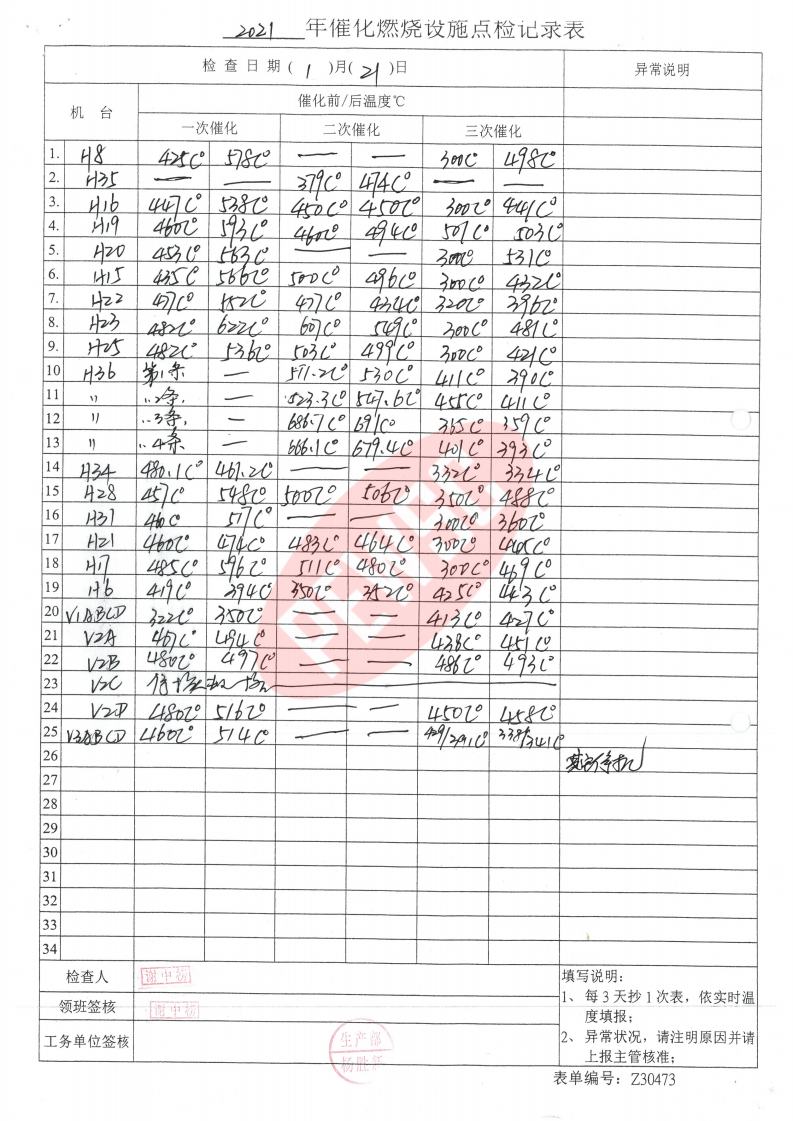 2021 年催化燃烧设施点检记录表
检查日期( 1 )月( 21 )日 异常说明
机 台 催化前/后温度℃
一次催化 二次催化 三次催化
1. H8 425C° 578C° — — 300C 498C°
2. H35 — — 379C° 474C° — —
3. H16 447C° 538C° 450C° 450C° 300C° 441C°
4. H19 460C° 593C° 460C° 494C° 501C° 503C°
5. H20 453C° 563C° — — 300C° 531C°
6. H15 435C° 566C° 500C° 496C° 300C° 432C°
7. H22 471C° 552C° 477C° 434C° 320C° 396C°
8. H23 482C° 622C° 607C° 549C° 300C° 481C°
9. H25 482C° 536C° 503C° 499C° 300C° 421C°
10 H36 第1条 — 571.2C° 530C° 411C° 390C°
11 〃 ..2条. — 523.3C° 547.6C° 455C° 411C°
12 〃 ..3条 — 686.7C° 691C° 365C° 359C°
13 〃 ..4条 — 666.1C° 679.4C° 401C° 393C°
14 H34 480.1C° 461.2C° — — 332C° 334C°
15 H28 457C° 548C° 500C° 506C° 350C° 488C°
16 H37 460C 517C° — — 300C° 360C°
17 H21 460C° 474C° 483C° 464C° 300C° 445C°
18 H17 485C° 596C° 511C° 480C° 300C° 469C°
19 H6 419C° 394C° 350C° 352C° 425C° 443C°
20 V1ABCD 322C° 350C° — — 413C° 427C°
21 V2A 467C° 494C° — — 438C° 451C°
22 V2B 480C° 497C° — — 486C° 493C°
23 V2C
24 V2D 480C° 516C° — — 450C° 458C°
25 V3ABCD 460C° 514C° — —
26
27
28
29
30
31
32
33
34
检查人 谢中杨
领班签核 谢中杨
工务单位签核 生产部
填写说明:
1、 每3天抄1次表，依实时温
度填报;
2、 异常状况，请注明原因并请
上报主管核准;
表单编号: Z30473